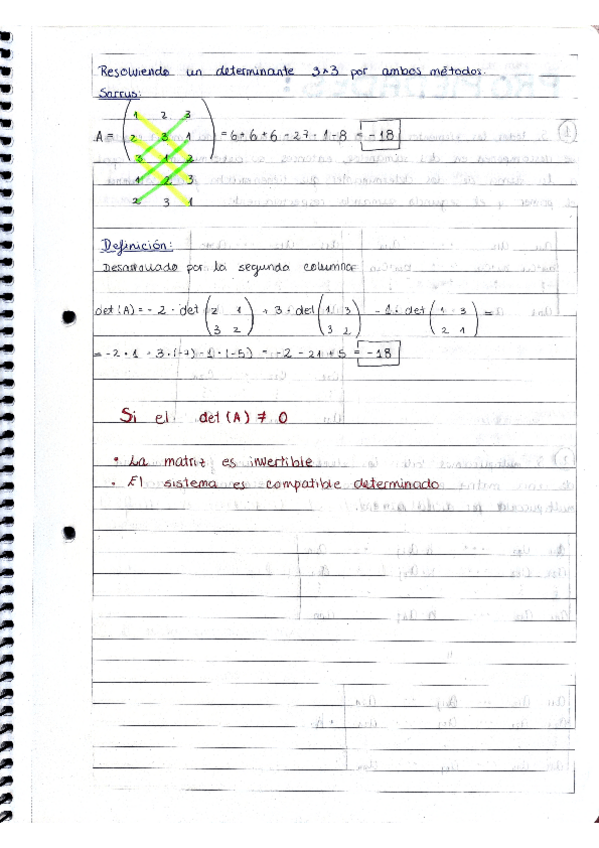 Resolviendo un determinante 3x3 por ambos métodos.
Sarrus:
1 2 3
A = 2 3 1 = 6+6+6-27-1-8 = -18
3 1 2
1 2 3
2 3 1
Definición:
Desarrollado por la segunda columna
det(A) = -2 · det (2 1 + 3 · det (1 3 - 1 · det (1 3 =
3 2) 3 2) 2 1)
= -2 · 1 + 3 · (-7) - 1 · (-5) = -2 - 21 + 5 = -18
Si el det(A) ≠ 0
· La matriz es invertible
· El sistema es compatible determinado